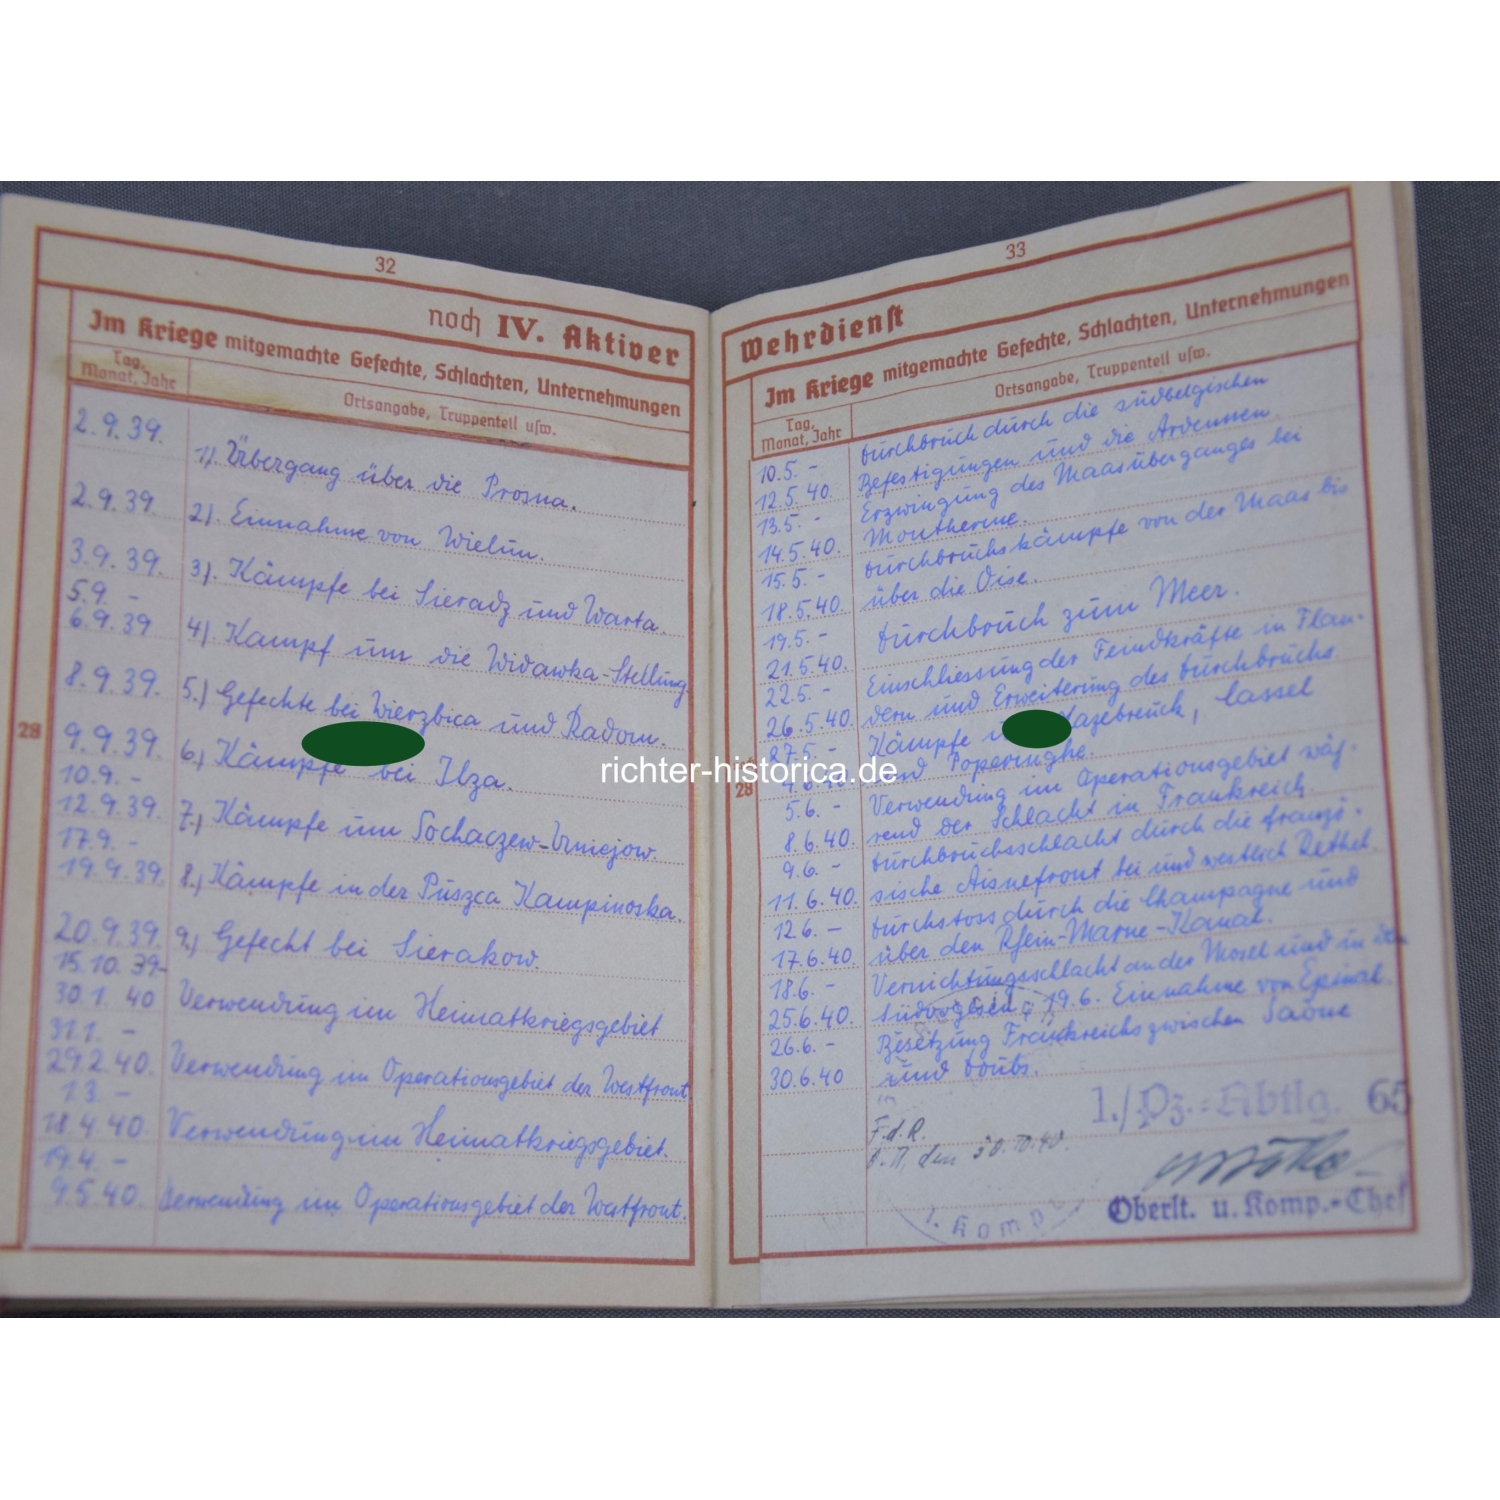 32
noch IV. Aktiver
Im Kriege mitgemachte Gefechte, Schlachten, Unternehmungen
Tag, Monat, Jahr
Ortsangabe, Truppenteil usw.
2.9.39. 1). Übergang über die Prosna.
2.9.39. 2). Einnahme von Wielun.
3.9.39. 3). Kämpfe bei Sieradz und Warta.
5.9. -
6.9.39 4). Kampf um die Widawka-Stellung
8.9.39. 5.) Gefechte bei Wierzbica und Radom.
9.9.39. 6.) Kämpfe bei Ilza.
10.9. -
12.9.39. 7.) Kämpfe um Sochaczew-
17.9. -
19.9.39. 8.) Kämpfe in der Puszca Kampinoska.
20.9.39. 9.) Gefecht bei Sierakow.
15.10.39-
30.1.40 Verwendung im Heimatkriegsgebiet
31.1. -
29.2.40. Verwendung im Operationsgebiet der Westfront
1.3. -
18.4.40. Verwendung im Heimatkriegsgebiet.
19.4. -
9.5.40. Verwendung im Operationsgebiet der Westfront.
28
33
Wehrdienst
Im Kriege mitgemachte Gefechte, Schlachten, Unternehmungen
Tag, Monat, Jahr
Ortsangabe, Truppenteil usw.
10.5. - Durchbruch durch die südbelgischen
12.5.40. Befestigungen und die Ardennen.
13.5. - Erzwingung des Maasüberganges bei
14.5.40. Montherme.
15.5. - Durchbruchskämpfe von der Maas bis
18.5.40. über die Oise.
19.5. - Durchbruch zum Meer.
21.5.40.
22.5. - Einschliessung der Feindkräfte in Flan-
26.5.40. dern und Erweiterung des Durchbruchs.
27.5. - Kämpfe Hazebrouck, Cassel
und Poperinghe.
5.6. - Verwendung im Operationsgebiet wäh-
8.6.40. rend der Schlacht in Frankreich.
9.6. - Durchbruchsschlacht durch die franzö-
11.6.40. sische Aisnefront bei und westlich Rethel.
12.6. - Durchstoss durch die Champagne und
17.6.40. über den Rhein-Marne-Kanal.
18.6. - Vernichtungsschlacht an der Mosel und in den
25.6.40. Südvogesen, 19.6. Einnahme von Epinal.
26.6. - Besetzung Frankreichs zwischen Saône
30.6.40 und Doubs.
28
F.d.R.
den 30.10.40.
1./Pz.-Abtlg. 65
Oberlt. u. Komp.-Chef
1. Komp.
richter-historica.de